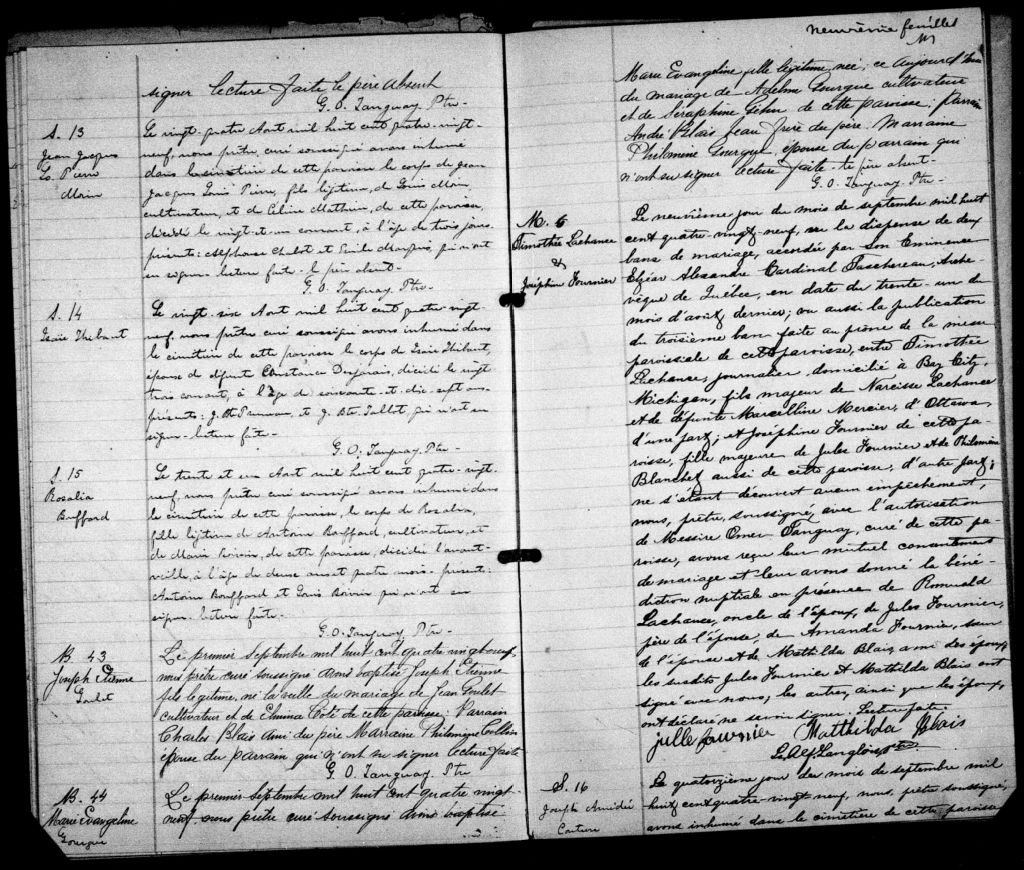 signer lecture faite le père absent
G. O. Tanguay Ptre
S. 13
Jean Jacques
Ls. Pierre
Morin
Le vingt-quatre Aout mil huit cent quatre-vingt-
neuf, nous prêtre, curé soussigné avons inhumé
dans le cimetière de cette paroisse le corps de Jean
Jacques Louis Pierre, fils légitime, de Louis Morin,
cultivateur, et de Célina Mathieu, de cette paroisse,
décédé le vingt-et-un courant, à l'âge de trois jours.
présents: Alphonse Chabot et Emile Marquis, qui n'ont
su signer - lecture faite - le père absent -
G. O. Tanguay Ptre -
S. 14
Isaïe Thibaut
Le vingt-six Aout mil huit cent quatre-vingt-
neuf, nous prêtre curé soussigné avons inhumé dans
le cimetière de cette paroisse le corps de Isaïe Thibaut,
époux de défunte Constance décédé le vingt
trois courant, à l'âge de soixante-et-dix-sept ans
présents: J. Bte et J. Bte Tallet, qui n'ont su
signer - lecture faite -
G. O. Tanguay Ptre -
S. 15
Rosalia
Bouffard
Le trente et un Aout mil huit cent quatre-vingt-
neuf, nous prêtre curé soussigné avons inhumé dans
le cimetière de cette paroisse, le corps de Rosalia,
fille légitime de Antoine Bouffard, cultivateur, et
de Marie Boivin, de cette paroisse, décédée l'avant-
veille, à l'âge de douze ans et quatre mois - présents:
Antoine Bouffard et Louis Boivin qui n'ont su
signer - lecture faite -
G. O. Tanguay Ptre -
B. 43
Joseph Etienne
Goulet
Le premier Septembre mil huit cent quatre vingt neuf,
nous prêtre curé soussigné avons baptisé Joseph Etienne
fils légitime, né la veille du mariage de Jean Goulet
cultivateur et de Elmina Coté de cette paroisse. Parrain
Charles Blais ami du père Marraine Philomène
épouse du parrain qui n'ont su signer lecture faite
G. O. Tanguay Ptre
B. 44
Marie Evangeline
Gourgue
Le premier Septembre mil huit cent quatre vingt
neuf nous prêtre curé soussigné avons baptisé
neuvième feuillet
Marie Evangeline fille légitime, née, ce aujourd'hui
du mariage de Adelme Gourgue cultivateur
et de Séraphine de cette paroisse; parrain
André Blais beau frère du père. Marraine
Philomène Gourgue, épouse du parrain qui
n'ont su signer lecture faite. le père absent -
G. O. Tanguay Ptre -
M. 6
Timothée Lachance
&
Joséphine Fournier
Le neuvième jour du mois de septembre mil huit
cent quatre-vingt-neuf, vu la dispense de deux
bans de mariage, accordée par son Eminence
Elzéar Alexandre Cardinal Taschereau, Arche-
vêque de Québec, en date du trente-un du
mois d'août dernier; vu aussi la publication
du troisième ban faite au prône de la messe
paroissiale de cette paroisse, entre Timothée
Lachance, journalier, domicilié à Bay City,
Michigan, fils majeur de Narcisse Lachance
et de défunte Marcelline Mercier, d'Ottawa
d'une part; et Joséphine Fournier de cette pa-
roisse, fille majeure de Jules Fournier et de Philomène
Blanchet aussi de cette paroisse, d'autre part;
ne s'étant découvert aucun empêchement,
nous, prêtre, soussigné, avec l'autorisation
de Messire Omer Tanguay, curé de cette pa-
roisse, avons reçu leur mutuel consentement
de mariage et leur avons donné la béné-
diction nuptiale en présence de Romuald
Lachance, oncle de l'époux, de Jules Fournier,
père de l'épouse, de Amanda Fournier, sœur
de l'épouse et de Mathilda Blais, amie des époux,
les susdits Jules Fournier et Mathilda Blais ont
signé avec nous, les autres, ainsi que les époux,
ont déclaré ne savoir signer. Lecture faite.
julle fournier Matthilda Blais
Ls. Alf. Langlois Ptre
S. 16
Joseph Amédée
Couture
Le quatorzième jour du mois de septembre mil
huit cent quatre-vingt neuf, nous, prêtre soussigné,
avons inhumé dans le cimetière de cette paroisse